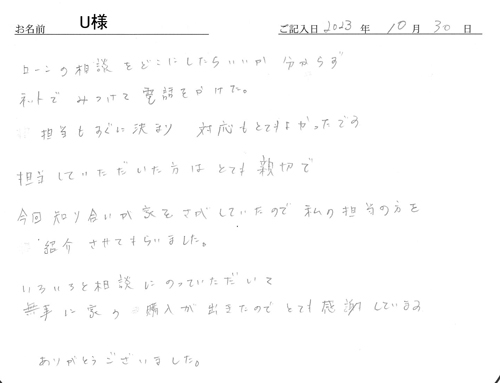 お名前 U様 ご記入日 2023 年 10 月 30 日
ローンの相談をどこにしたらいいか 分からず
ネットで みつけて 電話をかけた。
担当もすぐに決まり 対応もとてもよかったです
担当していただいた方は とても 親切で
今回 知り合いが 家をさがしていたので 私の担当の方を
ご紹介 させてもらいました。
いろいろと相談にのっていただいて
無事に家の 購入が 出きたので とても 感謝しています
ありがとうございました。